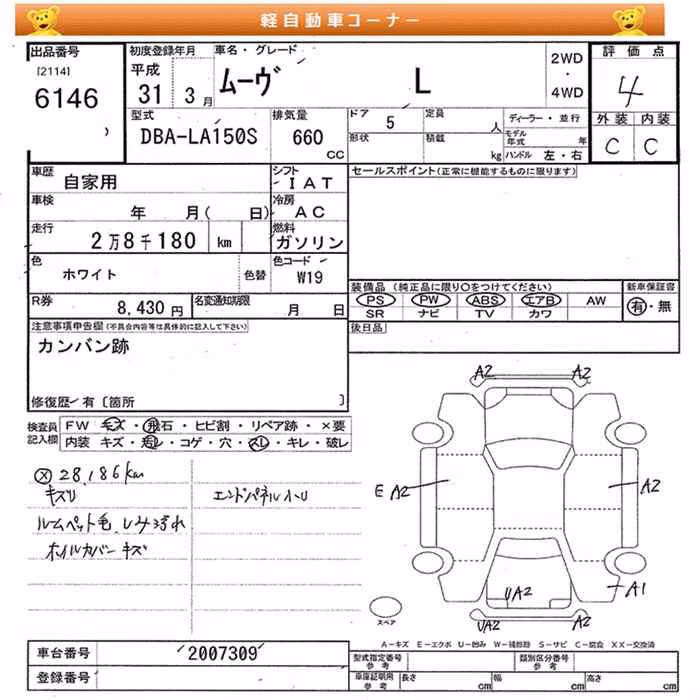 軽自動車コーナー
出品番号
[2114]
6146
初度登録年月
平成
31 3月
車名・グレード
ムーヴ L
2WD
・
4WD
評価点
4
外装 内装
C C
型式
DBA-LA150S
排気量
660
CC
ドア 5
定員
人
形状
積載
kg
ディーラー・並行
モデル年式 年
ハンドル 左・右
車歴
自家用
シフト
IAT
車検
年 月( 日)
冷房
AC
走行
2万8千180 km
燃料
ガソリン
色
ホワイト
色替
色コード
W19
R券
8,430円
名変通知期限
月 日
セールスポイント(正常に機能するものに限ります)
装備品(純正品に限り○をつけてください)
新車保証書
PS PW ABS エアB AW
SR ナビ TV カワ
有・無
後日品
注意事項申告欄(不具合内容等は具体的に記入して下さい)
カンバン跡
修復歴・有〔箇所 〕
検査員
記入欄
FW キズ・飛石・ヒビ割・リペア跡・×要
内装 キズ・汚レ・コゲ・穴・スレ・キレ・破レ
28,186km
キズU
エンドパネル小U
ルームペット毛、シミヨゴレ
ホイルカバーキズ
A2 A2
E A2
A2
UA2
A1
UA2
A2
スペア
A−キズ E−エクボ U−凹み W−補修跡 S−サビ C−腐食 XX−交換済
車台番号
2007309
登録番号
型式指定番号
参考
類別区分番号
参考
車庫証明用
参考
長さ cm
幅 cm
高さ cm